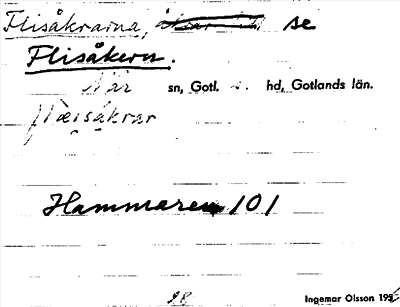 Flisåkrarna, se
Flisåkern.
När sn, Gotl. s. hd, Gotlands län.
Hammaren 101
28
Ingemar Olsson 195